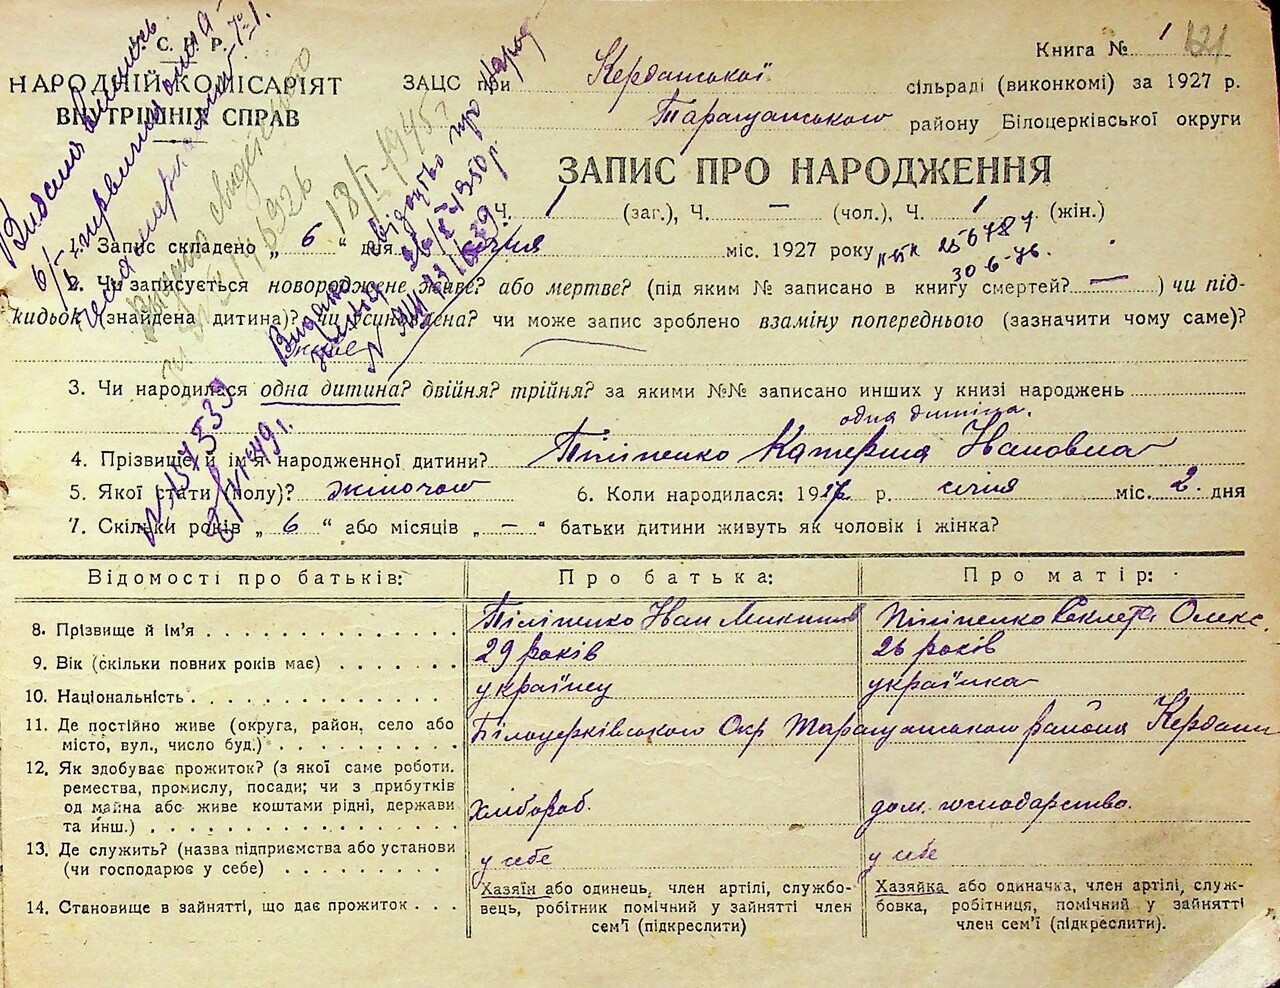 У. С. Р. Р.
НАРОДНІЙ КОМІСАРІЯТ
ВНУТРІШНІХ СПРАВ
Книга № 1
121
ЗАЦС при Керданської сільраді (виконкомі) за 1927 р.
Таращанського району Білоцерківської округи
ЗАПИС ПРО НАРОДЖЕННЯ
Ч. 1 (заг.), Ч. — (чол.), Ч. 1 (жін.)
1. Запис складено „ 6 “ дня січня міс. 1927 року
256787
30-6-76.
2. Чи записується новороджене живе? або мертве? (під яким № записано в книгу смертей? — ) чи під-
кидьок (знайдена дитина)? чи усиновлена? чи може запис зроблено взаміну попереднього (зазначити чому саме)?
3. Чи народилася одна дитина? двійня? трійня? за якими №№ записано инших у книзі народжень
одна дитина.
4. Прізвище й ім'я народженної дитини? Піліпенко Катерина Івановна
5. Якої стати (полу)? жіночої 6. Коли народилася: 1927 р. січня міс. 2. дня
7. Скільки років „ 6 “ або місяців „ — “ батьки дитини живуть як чоловік і жінка?
Відомості про батьків: Про батька: Про матір:
8. Прізвище й ім'я Піліпенко Іван Піліпенко Феклета Олекс.
9. Вік (скільки повних років має) 29 років 26 років
10. Національність українец українка
11. Де постійно живе (округа, район, село або
місто, вул., число буд.) Білоцерківського Окр Таращанського району Кердани
12. Як здобуває прожиток? (з якої саме роботи,
ремества, промислу, посади; чи з прибутків
од майна або живе коштами рідні, держави
та инш.) хлібороб. дом. господарство.
13. Де служить? (назва підприємства або установи
(чи господарює у себе) у себе у себе
14. Становище в зайнятті, що дає прожиток
Хазяїн або одинець, член артілі, службо-
вець, робітник помічний у зайнятті член
сем'ї (підкреслити)
Хазяйка або одиначка, член артілі, служ-
бовка, робітниця, помічний у зайнятті
член сем'ї (підкреслити).